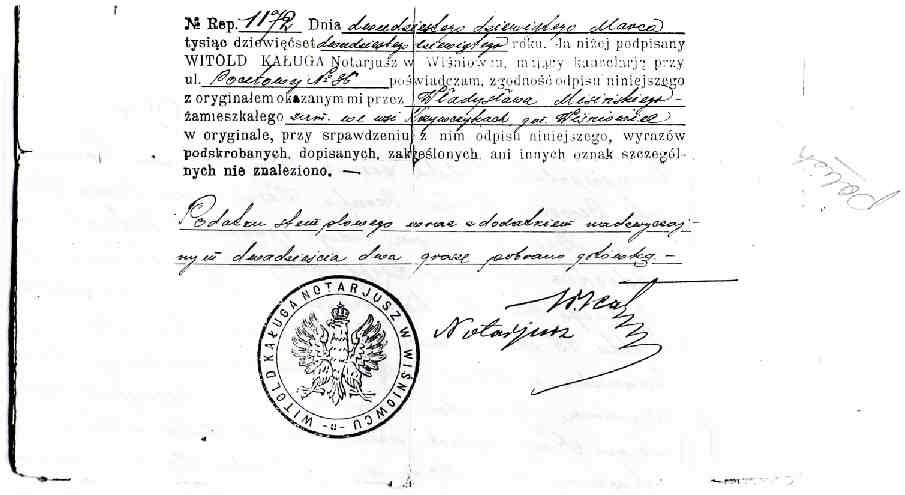 № Rep. 1192 Dnia dwudziestego dziewiątego Marca
tysiąc dziewięćset dwudziestego dziewiątego roku. Ja niżej podpisany
WITOLD KAŁUGA Notarjusz w Wiśniowcu, mający kancelarję przy
ul. Pocztowej № 36 poświadczam, zgodność odpisu niniejszego
z oryginałem okazanym mi przez Władysława Misińskiego -
zamieszkałego we wsi gm. Wiśniowiec
w oryginale, przy srpawdzeniu z nim odpisu niniejszego, wyrazów
podskrobanych, dopisanych, zakreślonych, ani innych oznak szczegól-
nych nie znaleziono. —
Podatku stemplowego wraz z dodatkiem nadzwyczaj-
nym dwadzieścia dwa grosze pobrano gotówką -
Notarjusz
WITOLD KAŁUGA NOTARJUSZ W WIŚNIOWCU
Polish